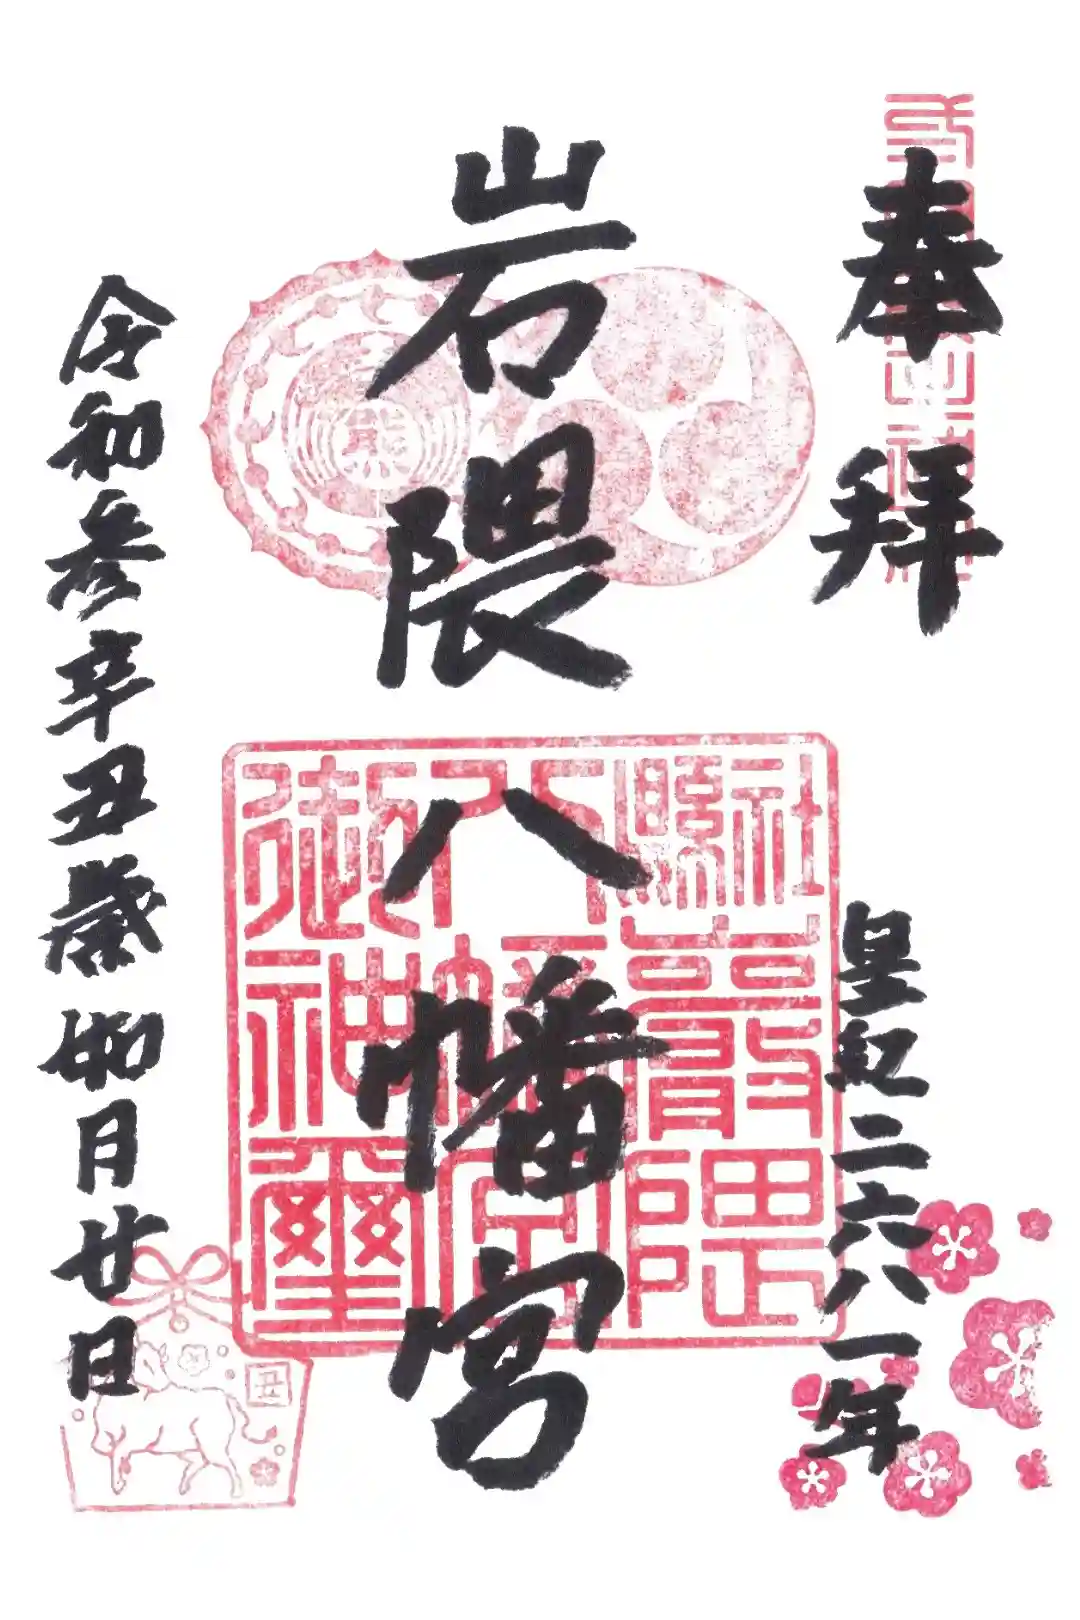 奉拝
皇紀二六八一年
岩隈八幡宮
縣社巖隈
八幡宮
御神璽
令和参辛丑歳 月廿日
丑